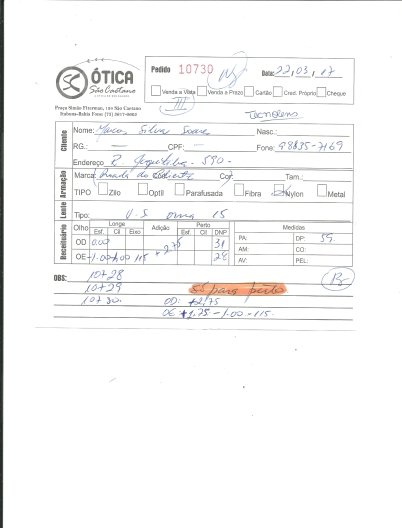 ÓTICA
São Caetano
Pedido 10730
Data: 22,03,17
Venda a Vista Venda a Prazo Cartão Cred. Próprio Cheque
III
Praça Simão Fitermam, 159 São Caetano
Itabuna-Bahia Fone: (73) 3617-0062
Tecnolens
Cliente
Nome: Silva Nasc.:
RG.: — CPF: — Fone: 98835-7169
Endereço R. 590 -
Armação
Marca: Cor: Tam.:
TIPO Zilo Optil Parafusada Fibra Nylon Metal
Lente
Tipo: V.S 15
Receituário
Olho Longe Adição Perto Medidas
Esf. Cil Eixo Esf. Cil DNP PA: DP: 59
OD 0.00 +2,75 31 AM: CO:
OE -1.00 115 28 AV: PEL:
OBS: 10+28
10+29 SS para perto
10+30. OD: +2,75
OE: +1.75 -1.00 -115.